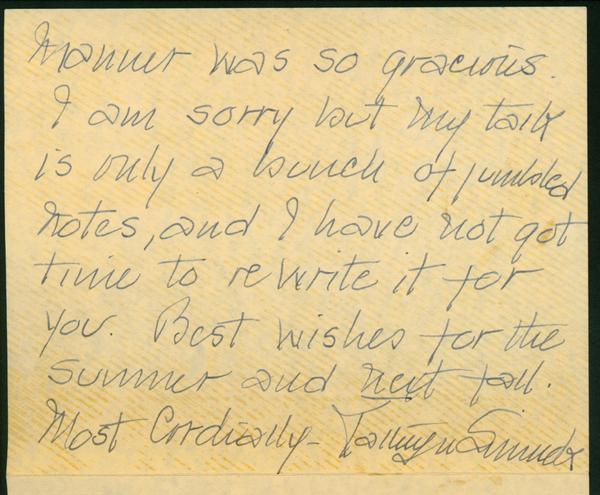 Manner was so gracious.
I am sorry but my talk
is only a bunch of jumbled
notes, and I have not got
time to rewrite it for
you. Best wishes for the
summer and next fall.
Most Cordially –